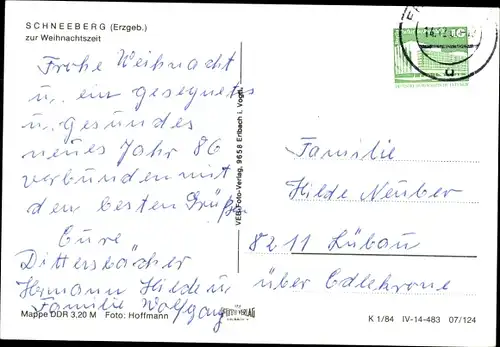 SCHNEEBERG (Erzgeb.)
zur Weihnachtszeit
Frohe Weihnacht
u. ein gesegnetes
u. gesundes
neues Jahr 86
verbunden mit
den besten Grüße
Eure
Dittersbächer
Hermann Hilde u
Familie Wolfgang
Mappe DDR 3,20 M Foto: Hoffmann
VEB Foto-Verlag, 9658 Erlbach i. Vogtl.
FOTO VERLAG
Familie
Hilde Neuber
8211 Lübau
über Edlekrone
K 1/84 IV-14-483 07/124